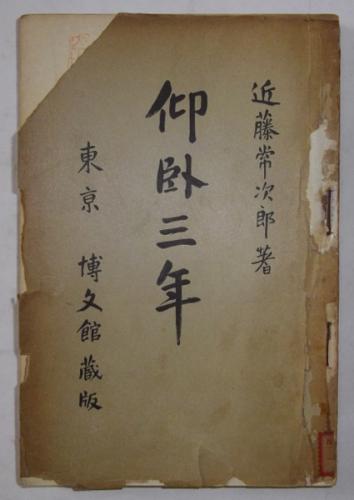 近藤常次郎著
仰臥三年
東京 博文館蔵版